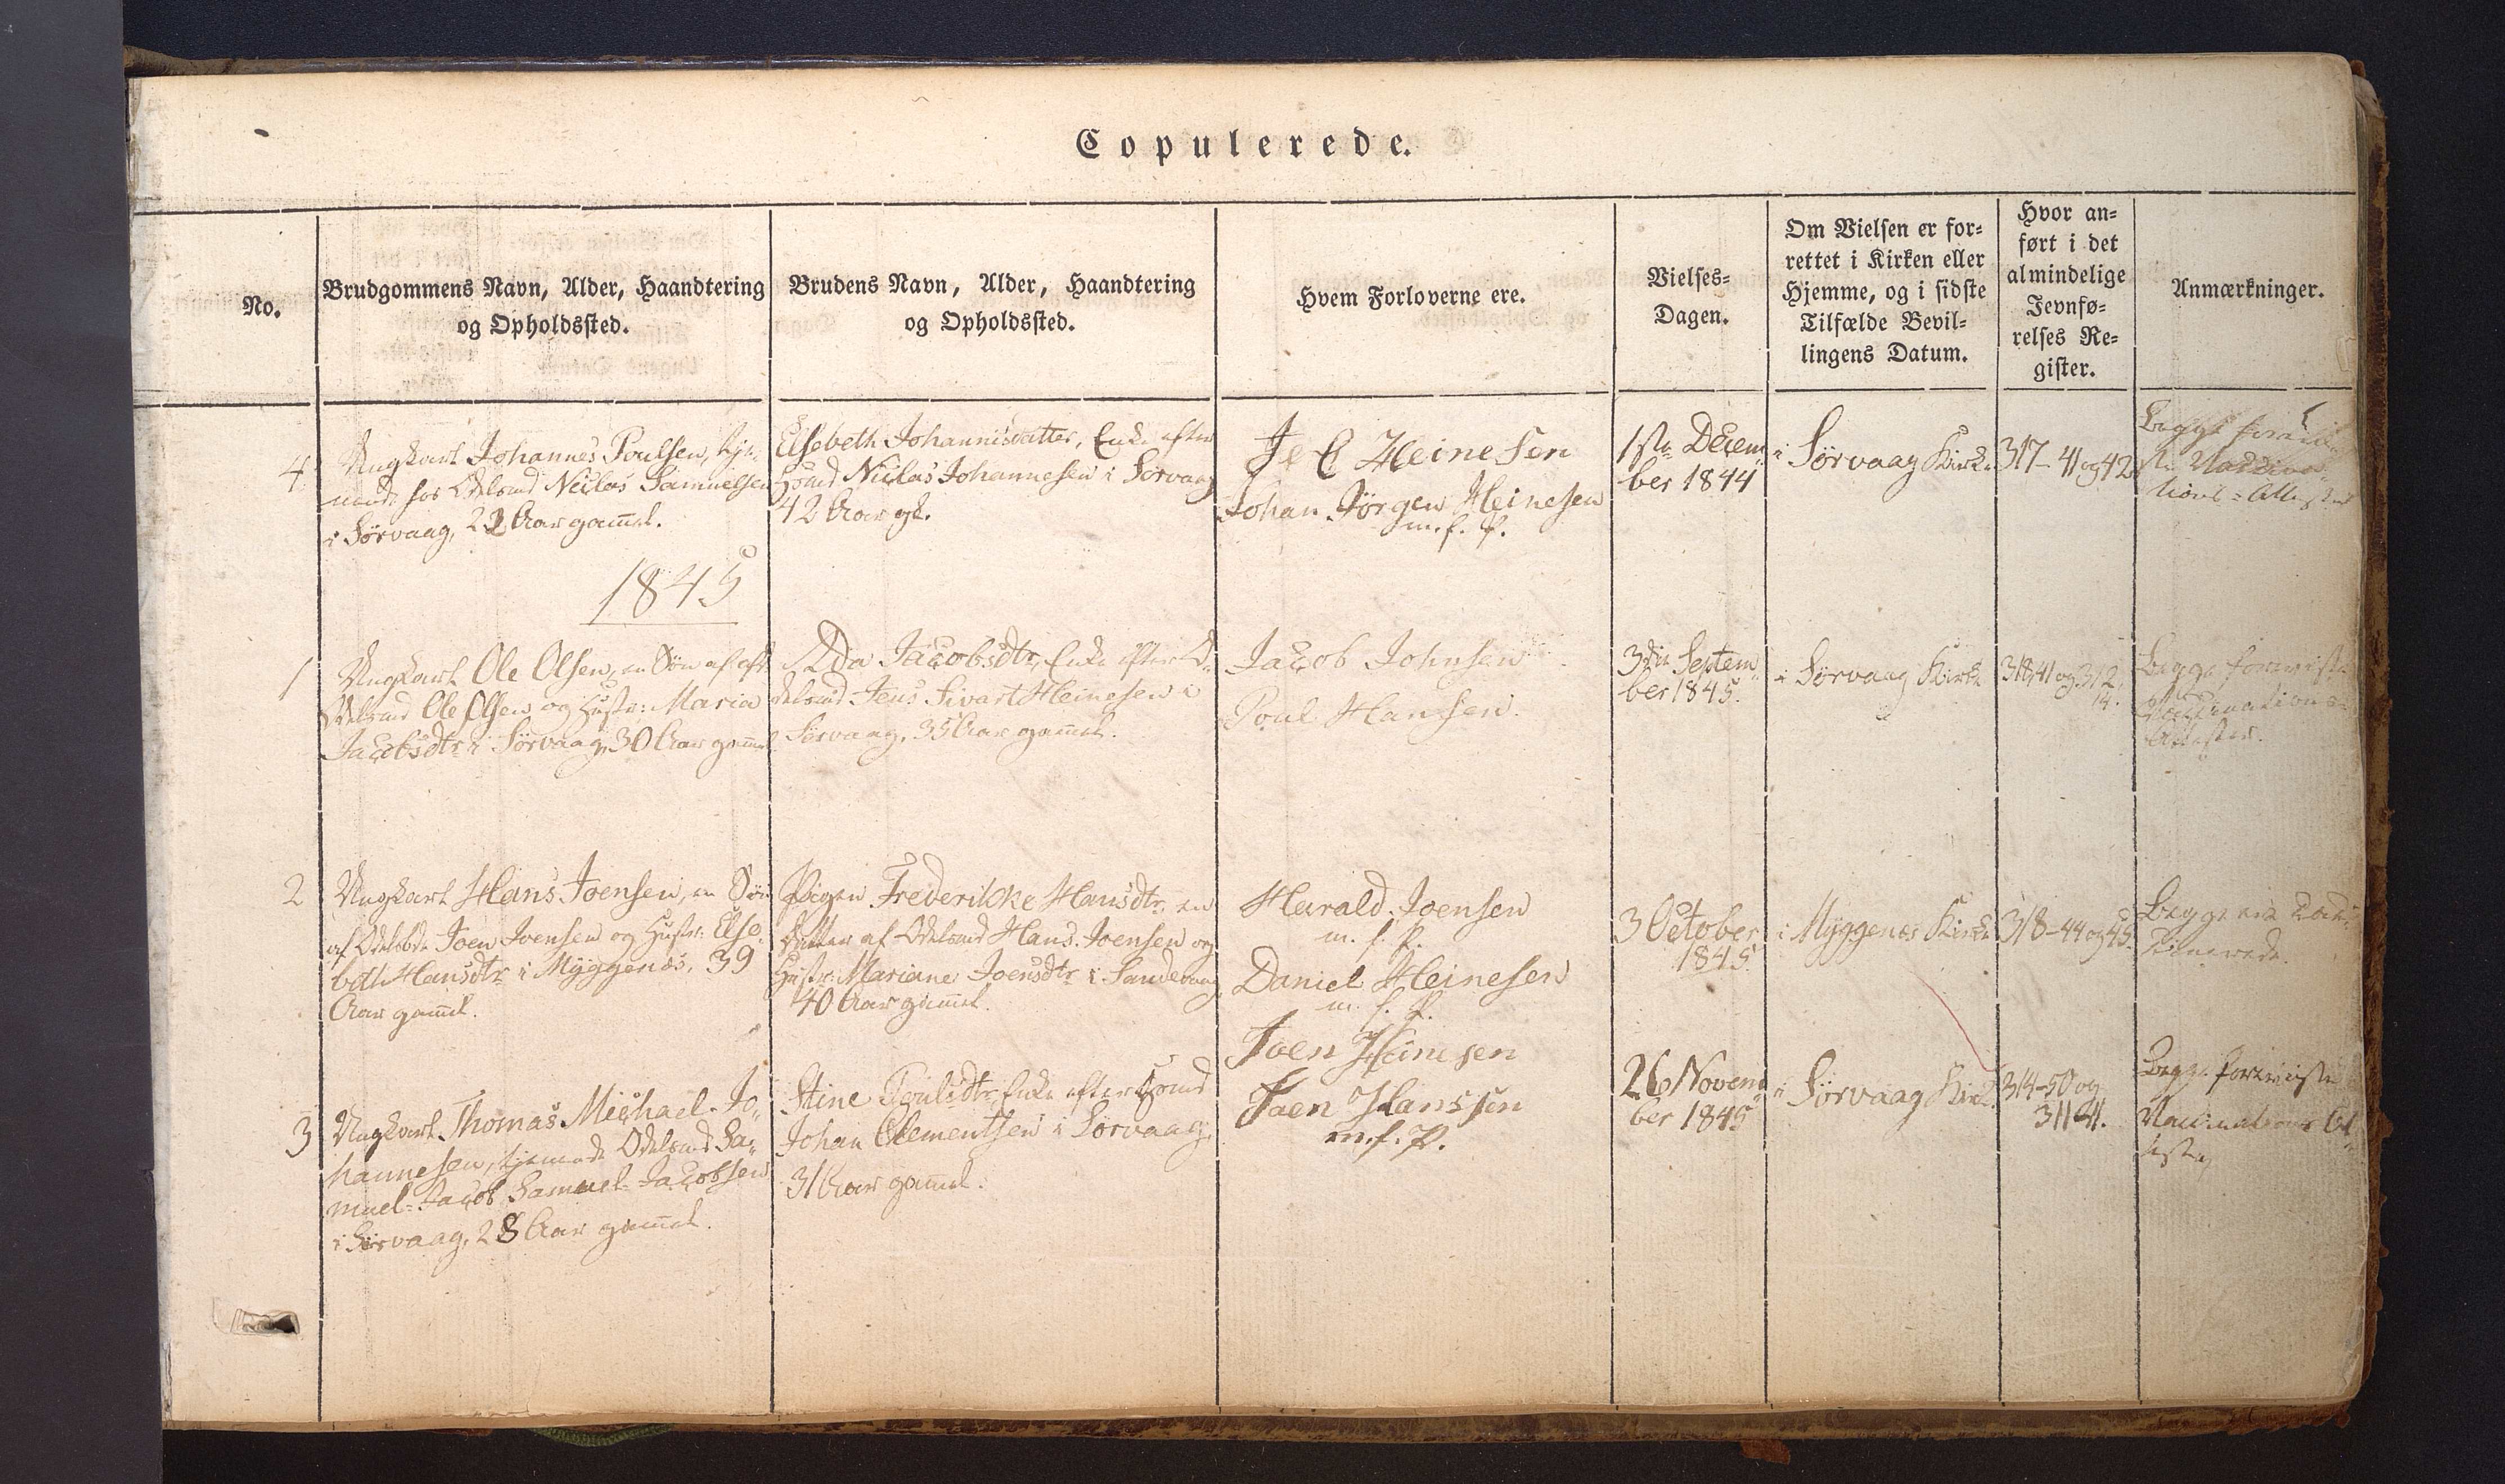 Copulerede.
No.
Brudgommens Navn, Alder, Haandtering
og Opholdssted.
Brudens Navn, Alder, Haandtering
og Opholdssted.
Hvem Forloverne ere.
Vielses-
Dagen.
Om Vielsen er for-
rettet i Kirken eller
Hjemme, og i sidste
Tilfælde Bevil-
lingens Datum.
Hvor an-
ført i det
almindelige
Jevnfø-
relses Re-
gister.
Anmærkninger.
4
Ungkarl Johannes Poulsen, tje-
nende hos Odelsmd Niclas Samuelsen
i Sørvaag, 22 Aar gam̄el.
Elsebeth Johannisdatter, Enke efter
Niclas Johannesen i Sørvaag
42 Aar gl.
J e C Heinesen
Johan Jørgen Heinesen
m. f. P.
1ste Decem-
ber 1844
i Sørvaag Kirke
317-41 og 42
Begge
1845
1
Ungkarl Ole Olsen, en Søn af afd
Odelsmd Ole Olsen og Hustr: Maria
Jacobsdtr i Sørvaag, 30 Aar gam̄el
Ada Jacobsdtr, Enke efter O-
delsmd Jens Sivart Heinesen i
Sørvaag, 35 Aar gam̄el.
Jacob Johnsen
Poul Hansen.
3die Septem-
ber 1845.
i Sørvaag Kirke
318,41 og 312,
14.
Begge foreviste
Vaccinations-
Attester.
2
Ungkarl Hans Joensen, en Søn
af Odelsbde Joen Joensen og Hustr: Else-
beth Hansdtr i Myggenæs, 39
Aar gam̄el.
Pigen Frederikke Hansdtr, en
Datter af Odelsmd Hans Joensen og
Hustr: Mariane Joensdtr i Sandevaag,
40 Aar gam̄el.
Harald Joensen
m. f. P.
Daniel Heinesen
m. f. P.
3 October
1845.
i Myggenæs Kirke
318-44 og 45.
Begge ere vacci-
nerede.
3
Ungkarl Thomas Michael Jo-
hannesen, tjenende Odelsmd Sa-
muel Jacob Samuel Jacobsen
i Sørvaag, 28 Aar gam̄el.
Stine Poulsdtr, Enke efter
Johan Clementsen i Sørvaag,
31 Aar gam̄el.
Joen Heinesen
Joen Hanssen
m. f. P.
26 Novem-
ber 1845
i Sørvaag Kirke.
314-50 og
311-41.
Begge foreviste
Vaccinations At-
tester